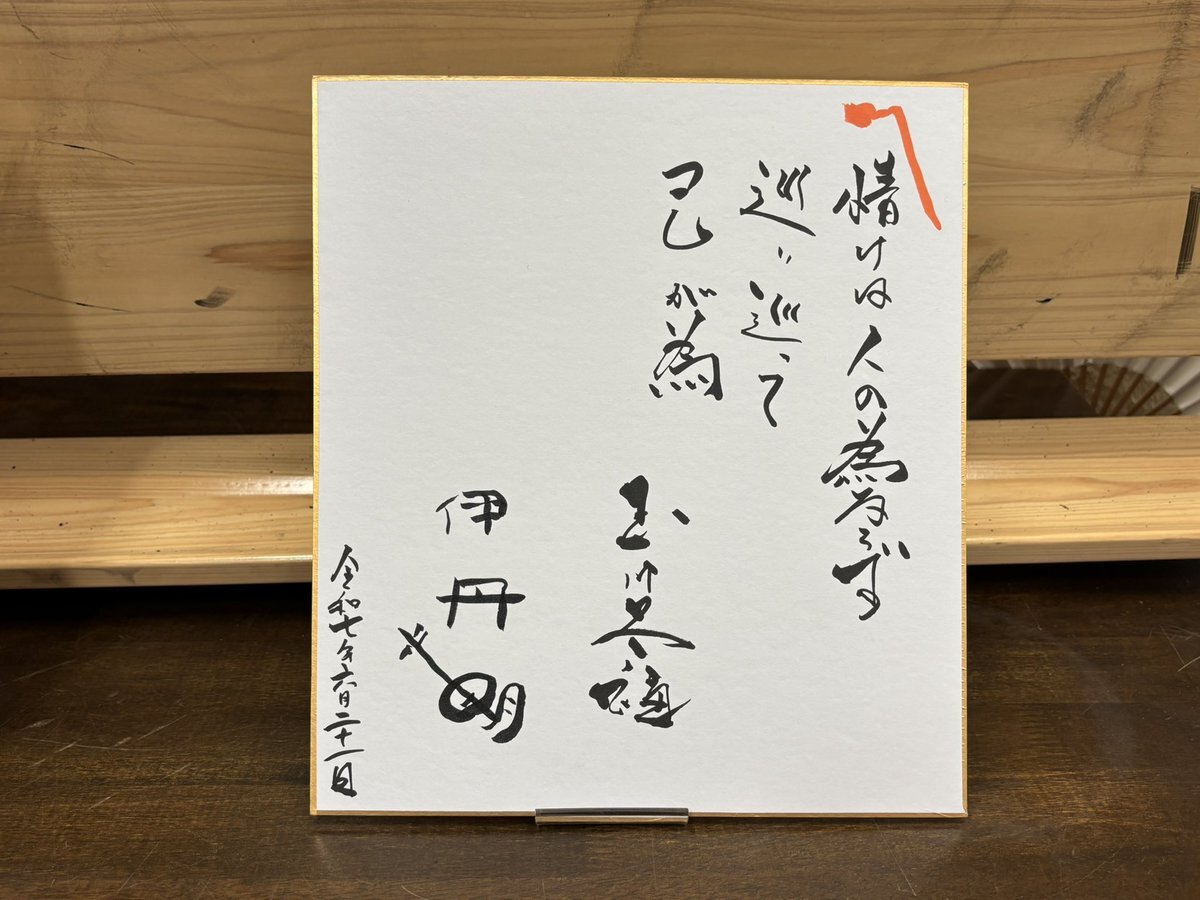 情けは人の為ならず
巡り巡って
己が為
玉川太福
伊丹明
令和七年六月二十一日